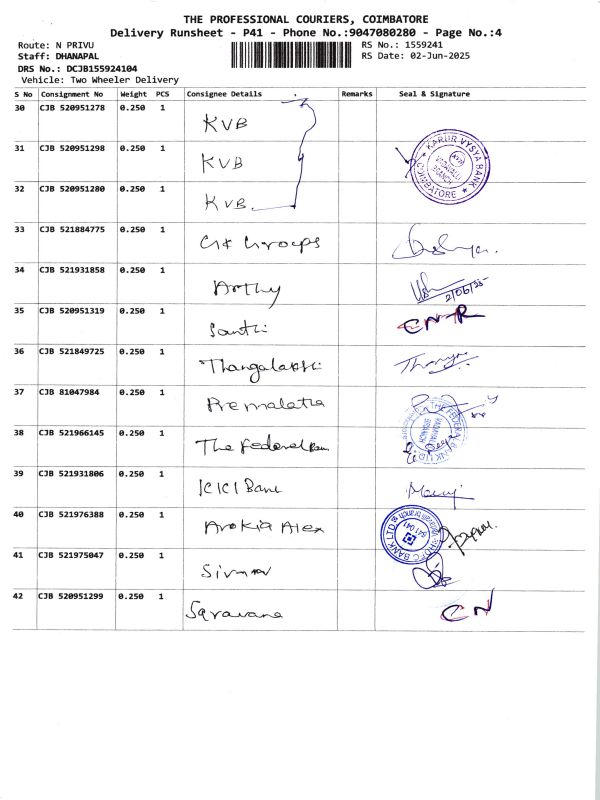 THE PROFESSIONAL COURIERS, COIMBATORE
Delivery Runsheet - P41 - Phone No.:9047080280 - Page No.:4
Route: N PRIVU
RS No.: 1559241
Staff: DHANAPAL
RS Date: 02-Jun-2025
DRS No.: DCJB155924104
Vehicle: Two Wheeler Delivery
S No Consignment No Weight PCS Consignee Details Remarks Seal & Signature
30 CJB 520951278 0.250 1 KVB
31 CJB 520951298 0.250 1 KVB
KARUR VYSYA BANK
COIMBATORE
32 CJB 520951280 0.250 1 KVB
33 CJB 521884775 0.250 1 Groups
34 CJB 521931858 0.250 1 Arthy
2/06/25
35 CJB 520951319 0.250 1 Santhi CNR
36 CJB 521849725 0.250 1
37 CJB 81047984 0.250 1 Premalatha
38 CJB 521966145 0.250 1 The Federal Bank
THE FEDERAL BANK LTD
39 CJB 521931806 0.250 1 ICICI Bank
40 CJB 521976388 0.250 1 Arokia Alex
HDFC BANK LTD
641 041
41 CJB 521975047 0.250 1
42 CJB 520951299 0.250 1 Saravana CN